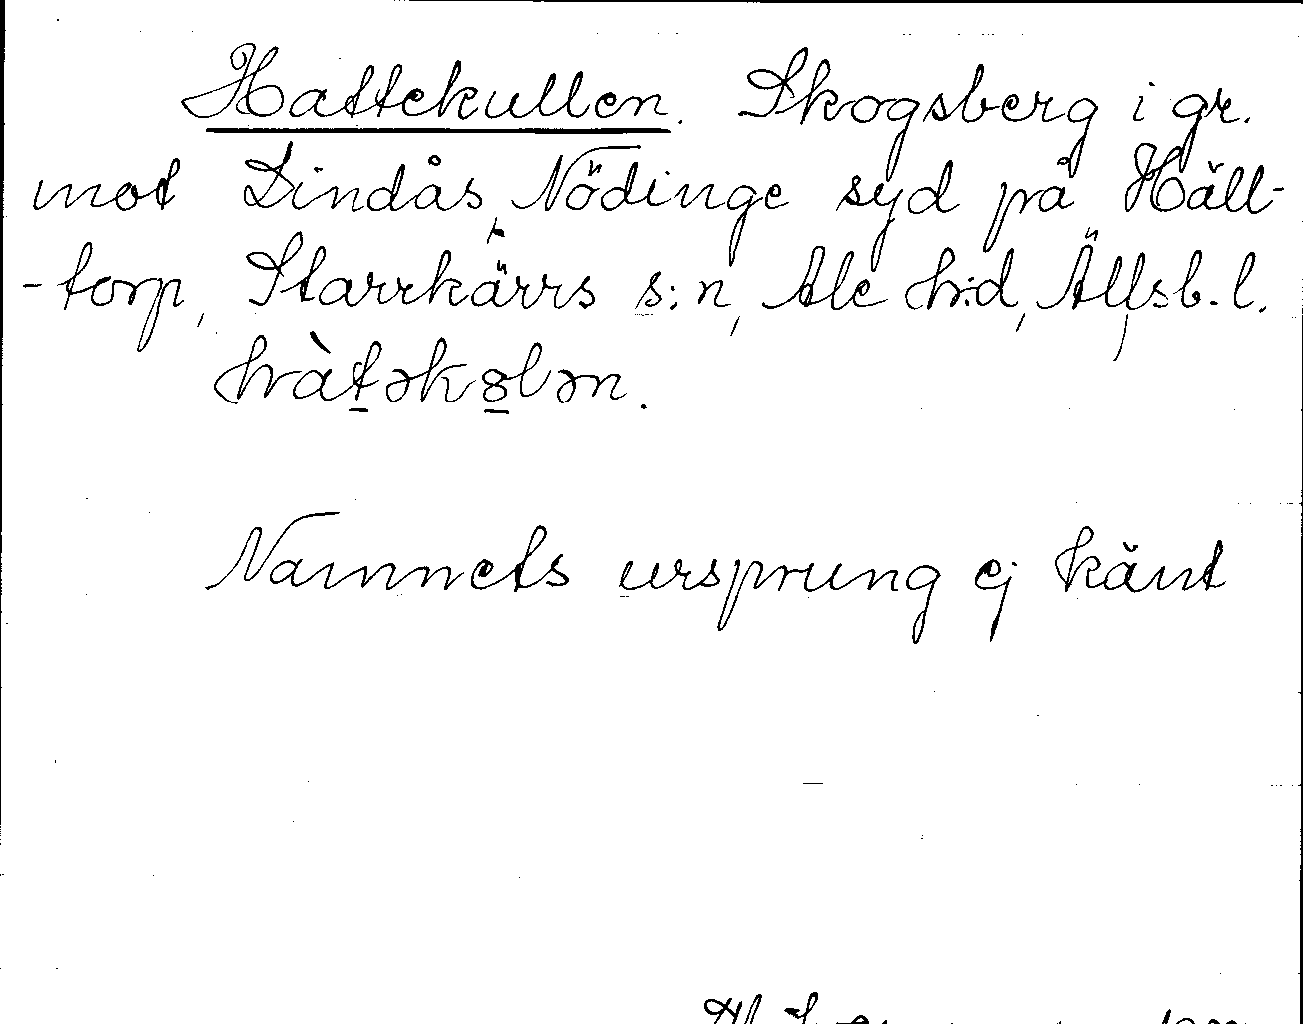 Hattekullen. Skogsberg i gr.
mot Lindås, Nödinge syd på Häll-
-torp, Starrkärrs s:n, Ale h:d, Älfsb. l.
hàtəkȣlən.
Namnets ursprung ej känt